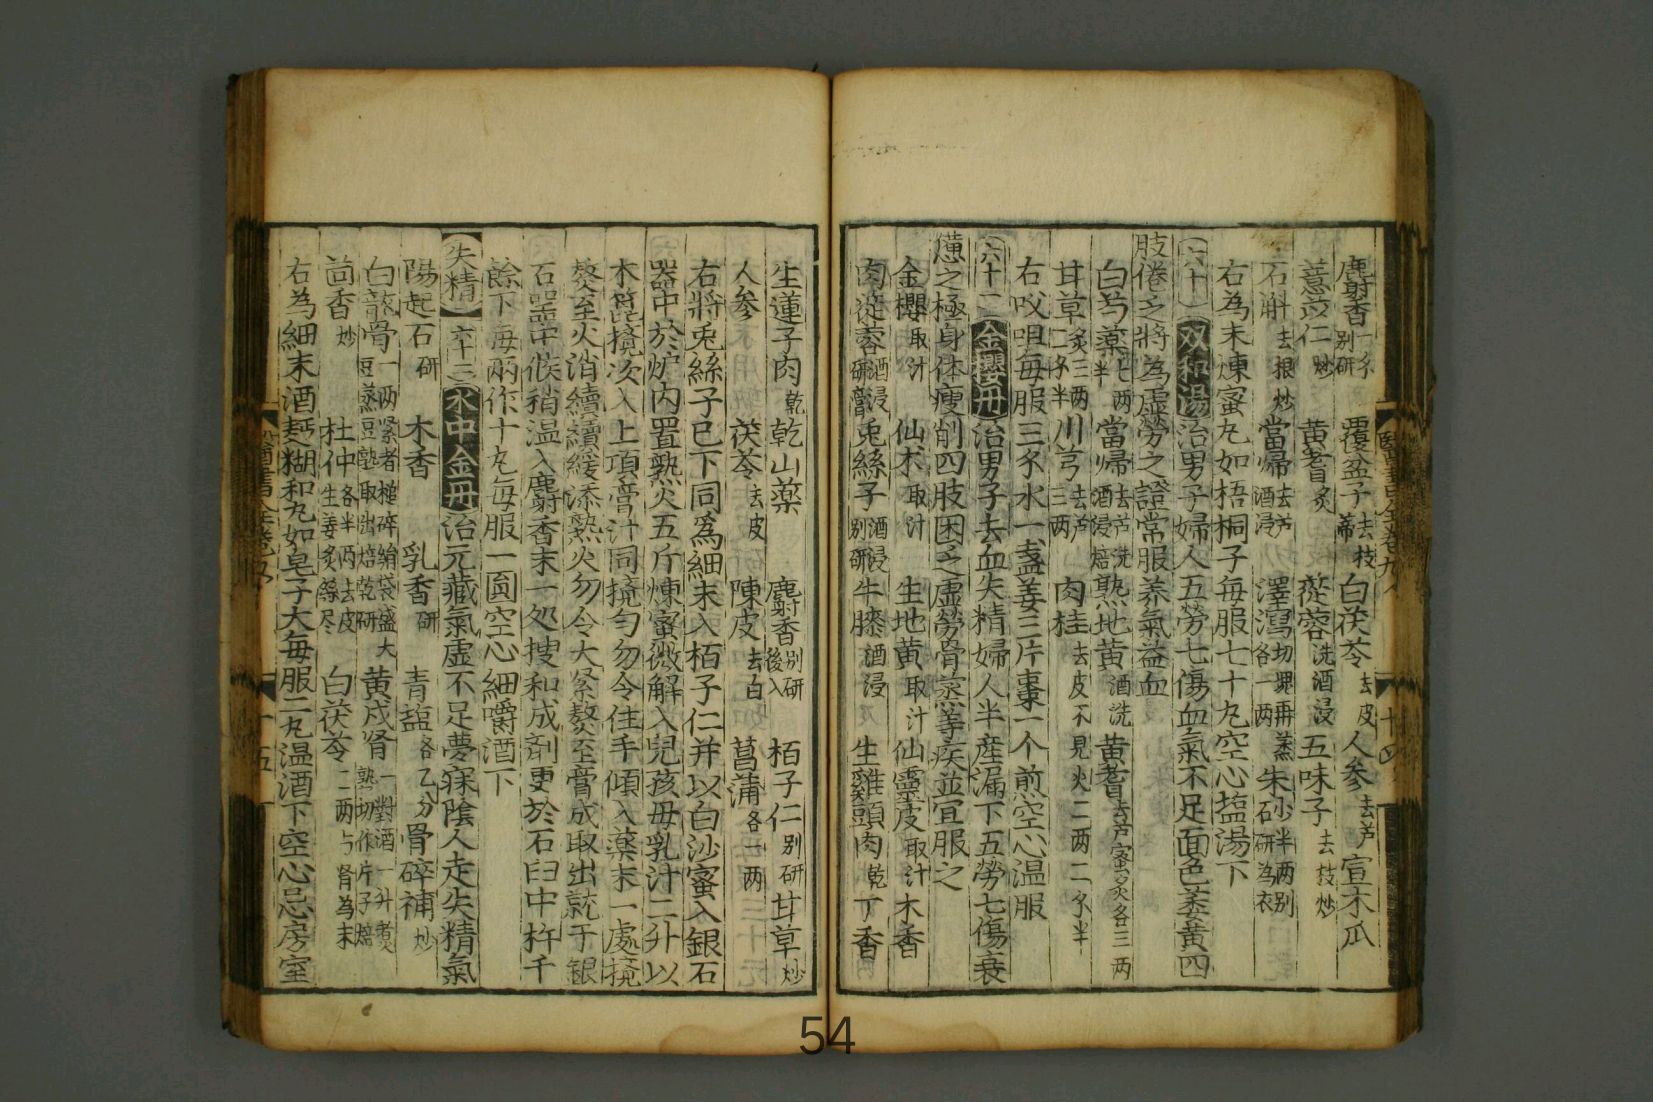 麝香一分別研 覆盆子去枝蒂 白茯苓去皮 人参去芦 宣木瓜
薏苡仁炒 黄耆炙 蓯蓉洗酒浸 五味子去枝炒
石斛去根炒 當帰去芦酒浸 澤瀉切塊再蒸各一两 朱砂半两别研為衣
右為末煉蜜丸如梧桐子每服七十丸空心塩湯下
六十一 双和湯 治男子婦人五勞七傷血氣不足面色萎黄四
肢倦乏將為虚勞之證常服养氣益血
白芍藥七两半 當帰去芦洗酒浸焙 熟地黄酒洗 黄耆去芦蜜炙各三两
甘草炙三两二分半 川芎去芦三两 肉桂去皮不見火二两二分半
右㕮咀每服三分水一盞姜三片棗一个煎空心温服
六十二 金櫻丹 治男子去血失精婦人半産漏下五勞七傷衰
憊之極身体瘦削四肢困乏虚勞骨蒸等疾並宜服之
金櫻取汁 仙术取汁 生地黄取汁 仙靈皮取汁 木香
肉蓯蓉酒浸研膏 兎絲子酒浸别研 牛膝酒浸 生雞頭肉乾 丁香
生蓮子肉乾 乾山薬 麝香别研後入 栢子仁别研 甘草炒
人参 茯苓去皮 陳皮去白 菖蒲各一两
右將兎絲子已下同為細末入栢子仁并以白沙蜜入銀石
器中於炉内置熟火五斤煉蜜微解入兒孩母乳汁二升以
木篦撹次入上項膏汁同撹勻勿令住手傾入薬末一處撹
熬至火消續續緩添熟火勿令大緊熬至膏成取出就于銀
石器中候稍温入麝香末一处搜和成剤更於石臼中杵千
餘下每两作十丸每服一圓空心細嚼酒下
失精 六十三 水中金丹 治元藏氣虚不足夢寐陰人走失精氣
陽起石研 木香 乳香研 青塩各乙分 骨碎補炒
白龍骨一两紧者槌碎絹袋盛大豆蒸豆熟取出焙乾研 黄戌肾一對酒一升煮熟切作片子焙
茴香炒 杜仲各半两去皮生姜炙絲尽 白茯苓二两与肾為末
右為細末酒麪糊和丸如皂子大每服二丸温酒下空心忌房室
醫書大全卷九
十四
十五
54